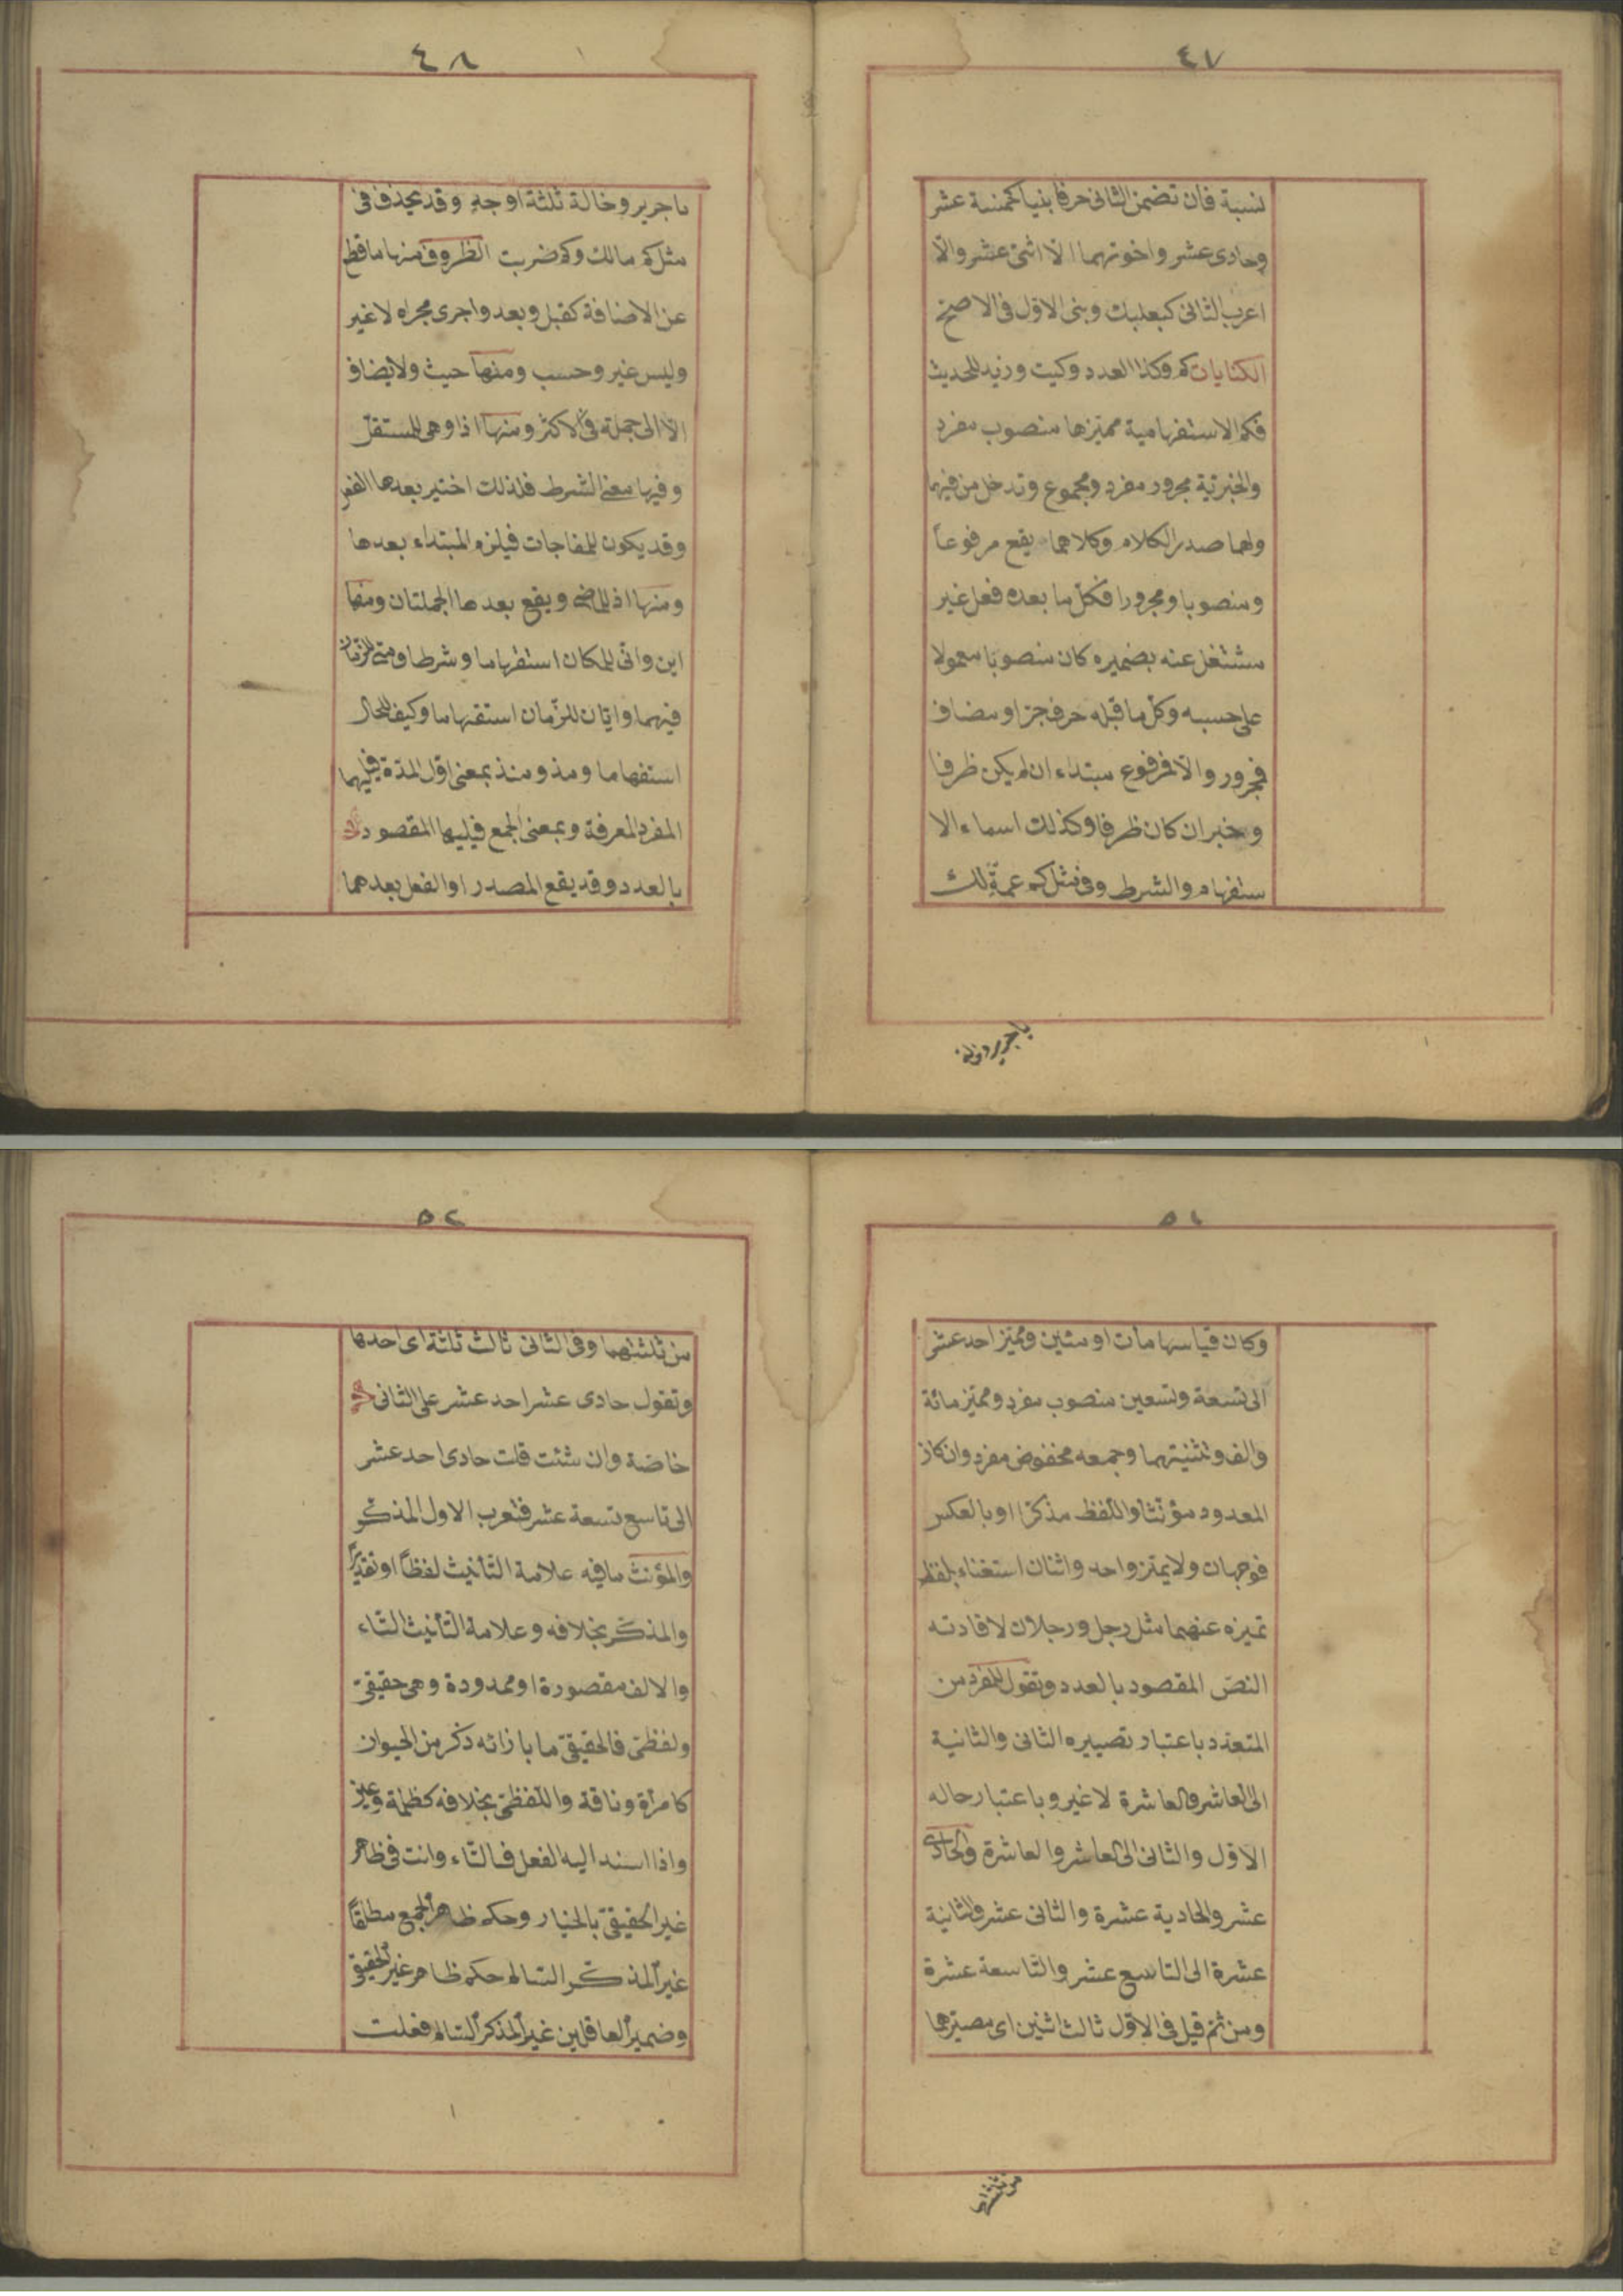 ٤٧
نسبة فان تضمن الثانى حرفا بنيا كخمسة عشر
وحادى عشر واخوتهما الا اثنى عشر والّا
اعرب الثانى كبعلبك وبنى الاول فى الاصح
الكنايات كم وكذا العدد وكيت وزيد للحديث
فكم الاستفهامية مميّزها منصوب مفرد
والخبرية مجرور مفرد ومجموع وتدخل من فيهما
ولهما صدر الكلام وكلاهما يقع مرفوعاً
ومنصوبا ومجرورا فكل ما بعده فعل غير
مشتغل عنه بضميره كان منصوبا معمولا
على حسبه وكل ما قبله حرف جر او مضاف
فمجرور والّا فمرفوع مبتداء ان لم يكن ظرفا
وخبر ان كان ظرفا وكذلك اسماء الا
ستفهام والشرط وفى مثل كم عمة لك
يا جرير وخالة
٤٨
يا جرير وخالة ثلثة اوجه وقد يحذف فى
مثل كم مالك وكم ضربت الظروف منها ما قطع
عن الاضافة كقبل وبعد واجرى مجراه لا غير
وليس غير وحسب ومنها حيث ولا يضاف
الّا الى جملة فى الاكثر ومنها اذا وهى للمستقبل
وفيها معنى الشرط فلذلك اختير بعدها الفعل
وقد يكون للمفاجات فيلزم المبتداء بعدها
ومنها اذ للماضى ويقع بعدها الجملتان ومنها
اين وانّى للمكان استفهاما وشرطا ومتى للزمان
فيهما وايّان للزّمان استفهاما وكيف للحال
استفهاما ومذ ومنذ بمعنى اوّل المدّة فيليهما
المفرد المعرفة وبمعنى الجمع فيليها المقصود
بالعدد وقد يقع المصدر او الفعل بعدهما
٥١
وكان قياسها مأت او مئين ومميّز احد عشر
الى تسعة وتسعين منصوب مفرد ومميّز مائة
والف وتثنيتهما وجمعه مخفوض مفرد وان كان
المعدود مؤنّثا واللّفظ مذكرا او بالعكس
فوجهان ولا يميّز واحد واثنان استغناء بلفظ
تميزه عنهما مثل رجل ورجلان لافادته
النصّ المقصود بالعدد وتقول للمفرد من
المتعدّد باعتبار تصييره الثانى والثانية
الى العاشر والعاشرة لا غير وباعتبار حاله
الاوّل والثانى الى العاشر والعاشرة والحادى
عشر والحادية عشرة والثانى عشر والثانية
عشرة الى التاسع عشر والتّاسعة عشرة
ومن ثمّ قيل فى الاوّل ثالث اثنين اى مصيّرهما
من ثلثتهما
٥٢
من ثلثتهما وفى الثانى ثالث ثلثة اى احدها
وتقول حادى عشر احد عشر على الثانى
خاصّة وان شئت قلت حادى احد عشر
الى تاسع تسعة عشر فتعرب الاول المذكّر
والمؤنث ما فيه علامة التّأنيث لفظاً او تقديراً
والمذكّر بخلافه وعلامة التّأنيث التّاء
والالف مقصورة او ممدودة وهى حقيقىّ
ولفظىّ فالحقيقىّ ما بازائه ذكر من الحيوان
كامرأة وناقة واللّفظىّ بخلافه كظلمة وعين
واذا اسند اليه الفعل فالتّاء وانت فى ظاهر
غير الحقيقىّ بالخيار وحكم ظاهر الجمع مطلقاً
غير المذكّر السّالم حكم ظاهر غير الحقيقىّ
وضمير العاقلين غير المذكر السّالم فعلت